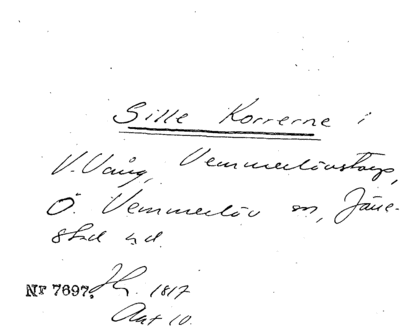 Sille Korrerne i
V. Vång, Vemmerlövstorp,
Ö. Vemmerlöv m, Järre-
stad hd.
Nr 7697. 1817
Aat 10.